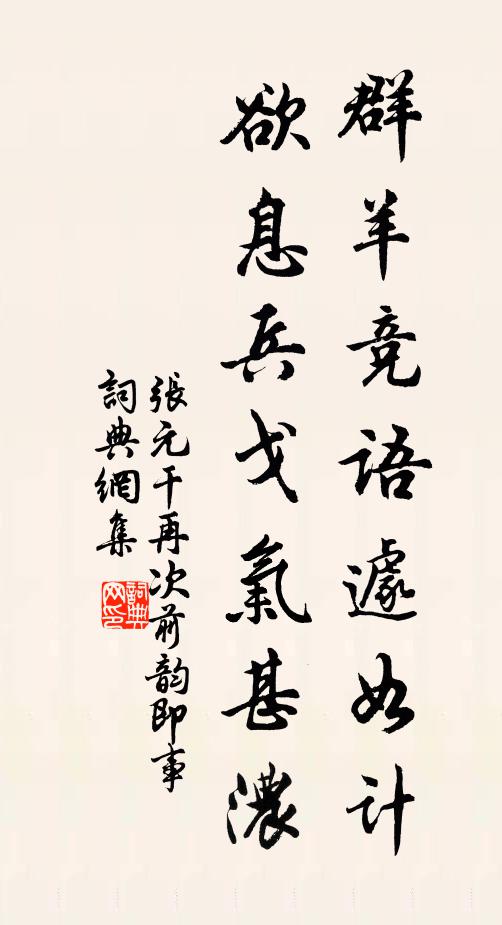 群羊竞语遽如计
欲息兵戈氣甚濃
張元干再次前韵即事
詞典網集
詞典网印